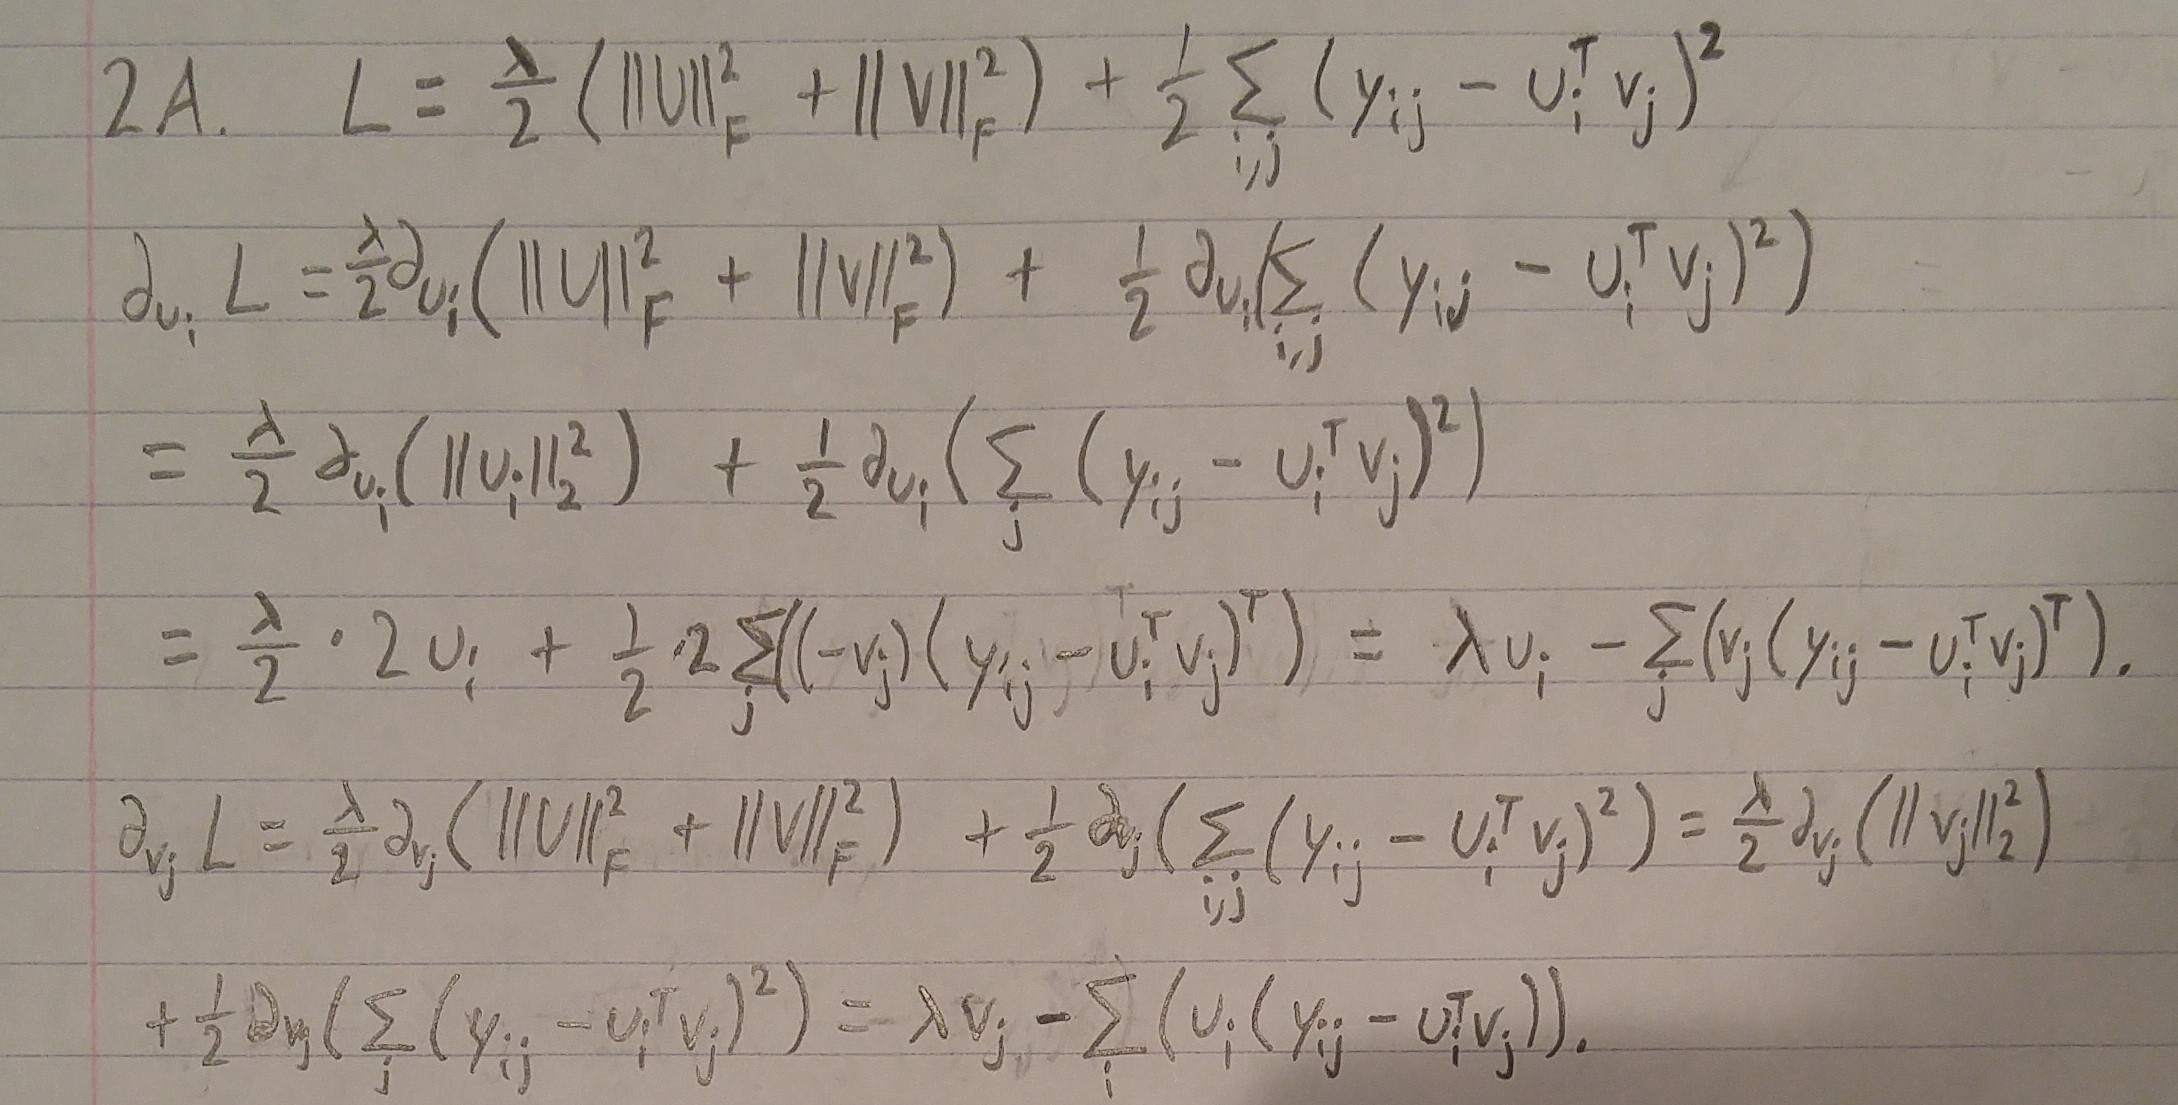 2A. L = λ/2 (||U||²_F + ||V||²_F) + 1/2 Σ_{i,j} (y_{ij} − u_i^T v_j)²
∂_{u_i} L = λ/2 ∂_{u_i} (||U||²_F + ||V||²_F) + 1/2 ∂_{u_i} (Σ_{i,j} (y_{ij} − u_i^T v_j)²)
= λ/2 ∂_{u_i} (||u_i||²_2) + 1/2 ∂_{u_i} (Σ_j (y_{ij} − u_i^T v_j)²)
= λ/2 · 2u_i + 1/2 · 2 Σ_j ((−v_j)(y_{ij} − u_i^T v_j)^T) = λu_i − Σ_j (v_j (y_{ij} − u_i^T v_j)^T).
∂_{v_j} L = λ/2 ∂_{v_j} (||U||²_F + ||V||²_F) + 1/2 ∂_{v_j} (Σ_{i,j} (y_{ij} − u_i^T v_j)²) = λ/2 ∂_{v_j} (||v_j||²_2)
+ 1/2 ∂_{v_j} (Σ_j (y_{ij} − u_i^T v_j)²) = λv_j − Σ_i (u_i (y_{ij} − u_i^T v_j)).